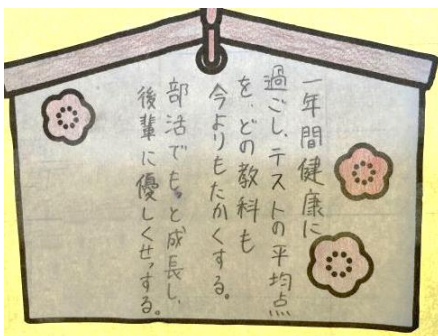 一年間健康に
過ごし、テストの平均点
を、どの教科も
今よりもたかくする。
部活でもっと成長し、
後輩に優しくせっする。